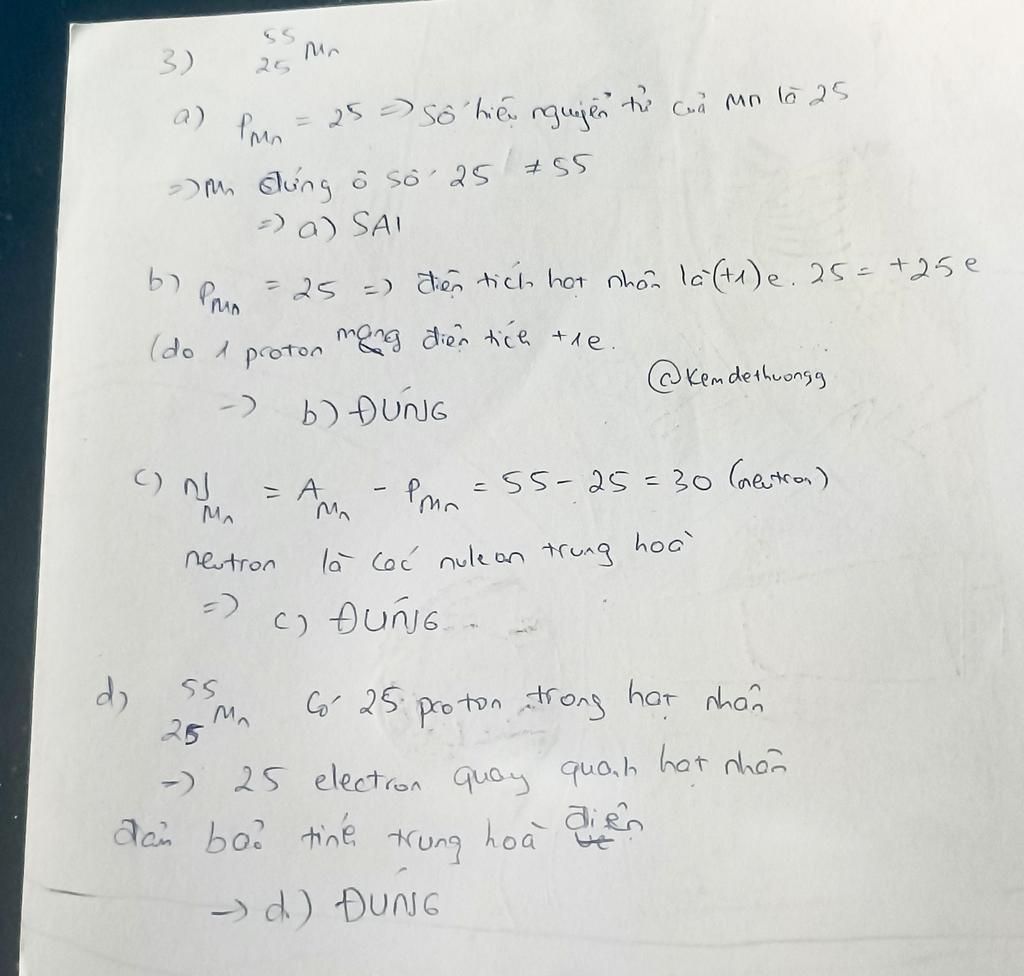 3) ⁵⁵₂₅Mn
a) P_Mn = 25 => Số hiệu nguyên tử của Mn là 25
=> Mn đứng ô số 25 ≠ 55
=> a) SAI
b) P_Mn = 25 => điện tích hạt nhân là (+1)e . 25 = +25e
(do 1 proton mang điện tích +1e.
@Kemdethuongg
-> b) ĐÚNG
c) N_Mn = A_Mn - P_Mn = 55 - 25 = 30 (neutron)
neutron là các nulean trung hoà
=> c) ĐÚNG
d) ⁵⁵₂₅Mn Có 25 proton trong hạt nhân
-> 25 electron quay quanh hạt nhân
đản bảo tính trung hoà điện
-> d) ĐÚNG